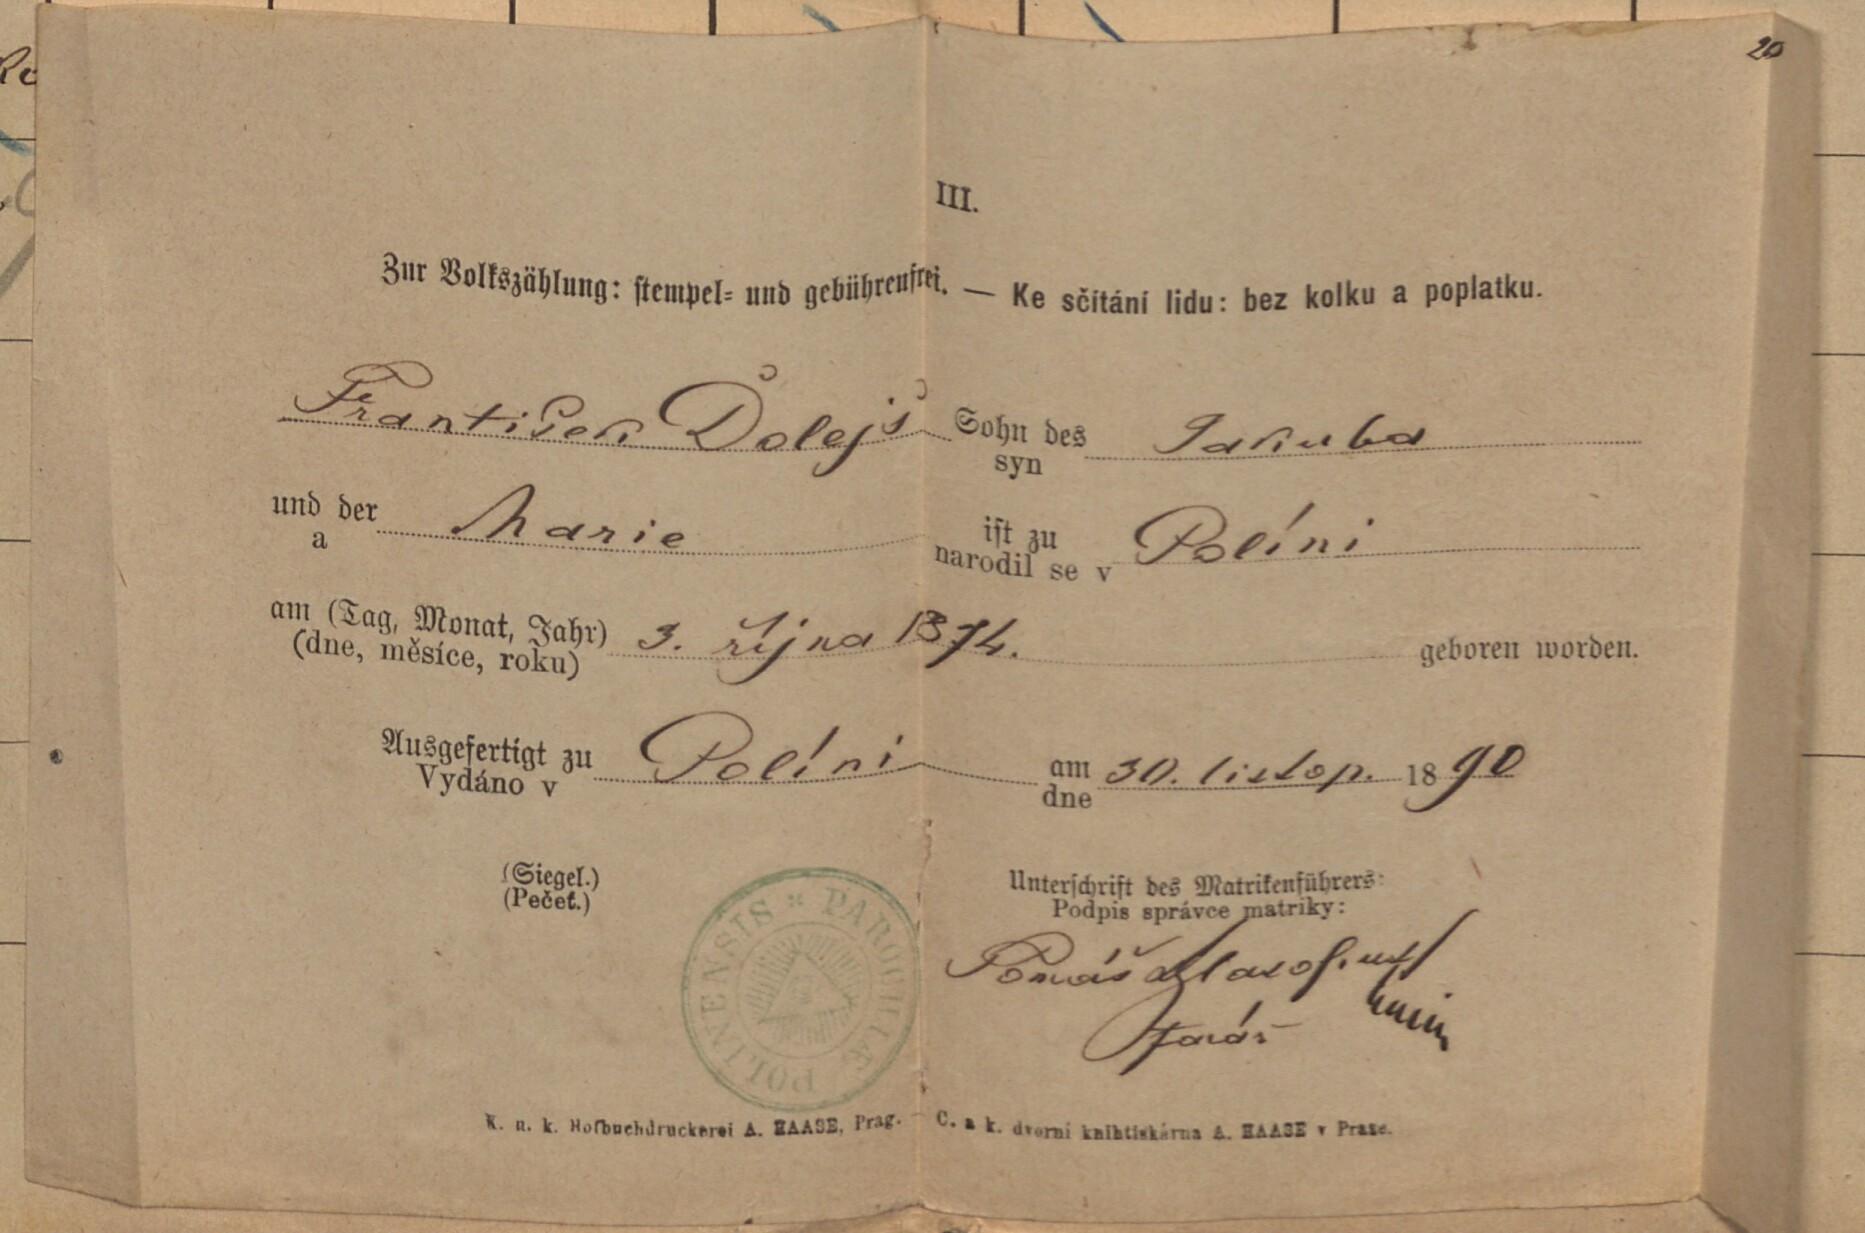 20
III.
Zur Volkszählung: stempel- und gebührenfrei. — Ke sčítání lidu: bez kolku a poplatku.
František Dolejš Sohn des Jakuba
syn
und der Marie ist zu Políni
a narodil se v
am (Tag, Monat, Jahr) 3. října 1874. geboren worden.
(dne, měsíce, roku)
Ausgefertigt zu Políni am 30. listop. 1890
Vydáno v dne
(Siegel.)
(Pečeť.)
PAROCHIÆ POLINENSIS
Unterschrift des Matrikenführers:
Podpis správce matriky:
Tomáš
farář
K. u. k. Hofbuchdruckerei A. HAASE, Prag. — C. a k. dvorní knihtiskárna A. HAASE v Praze.